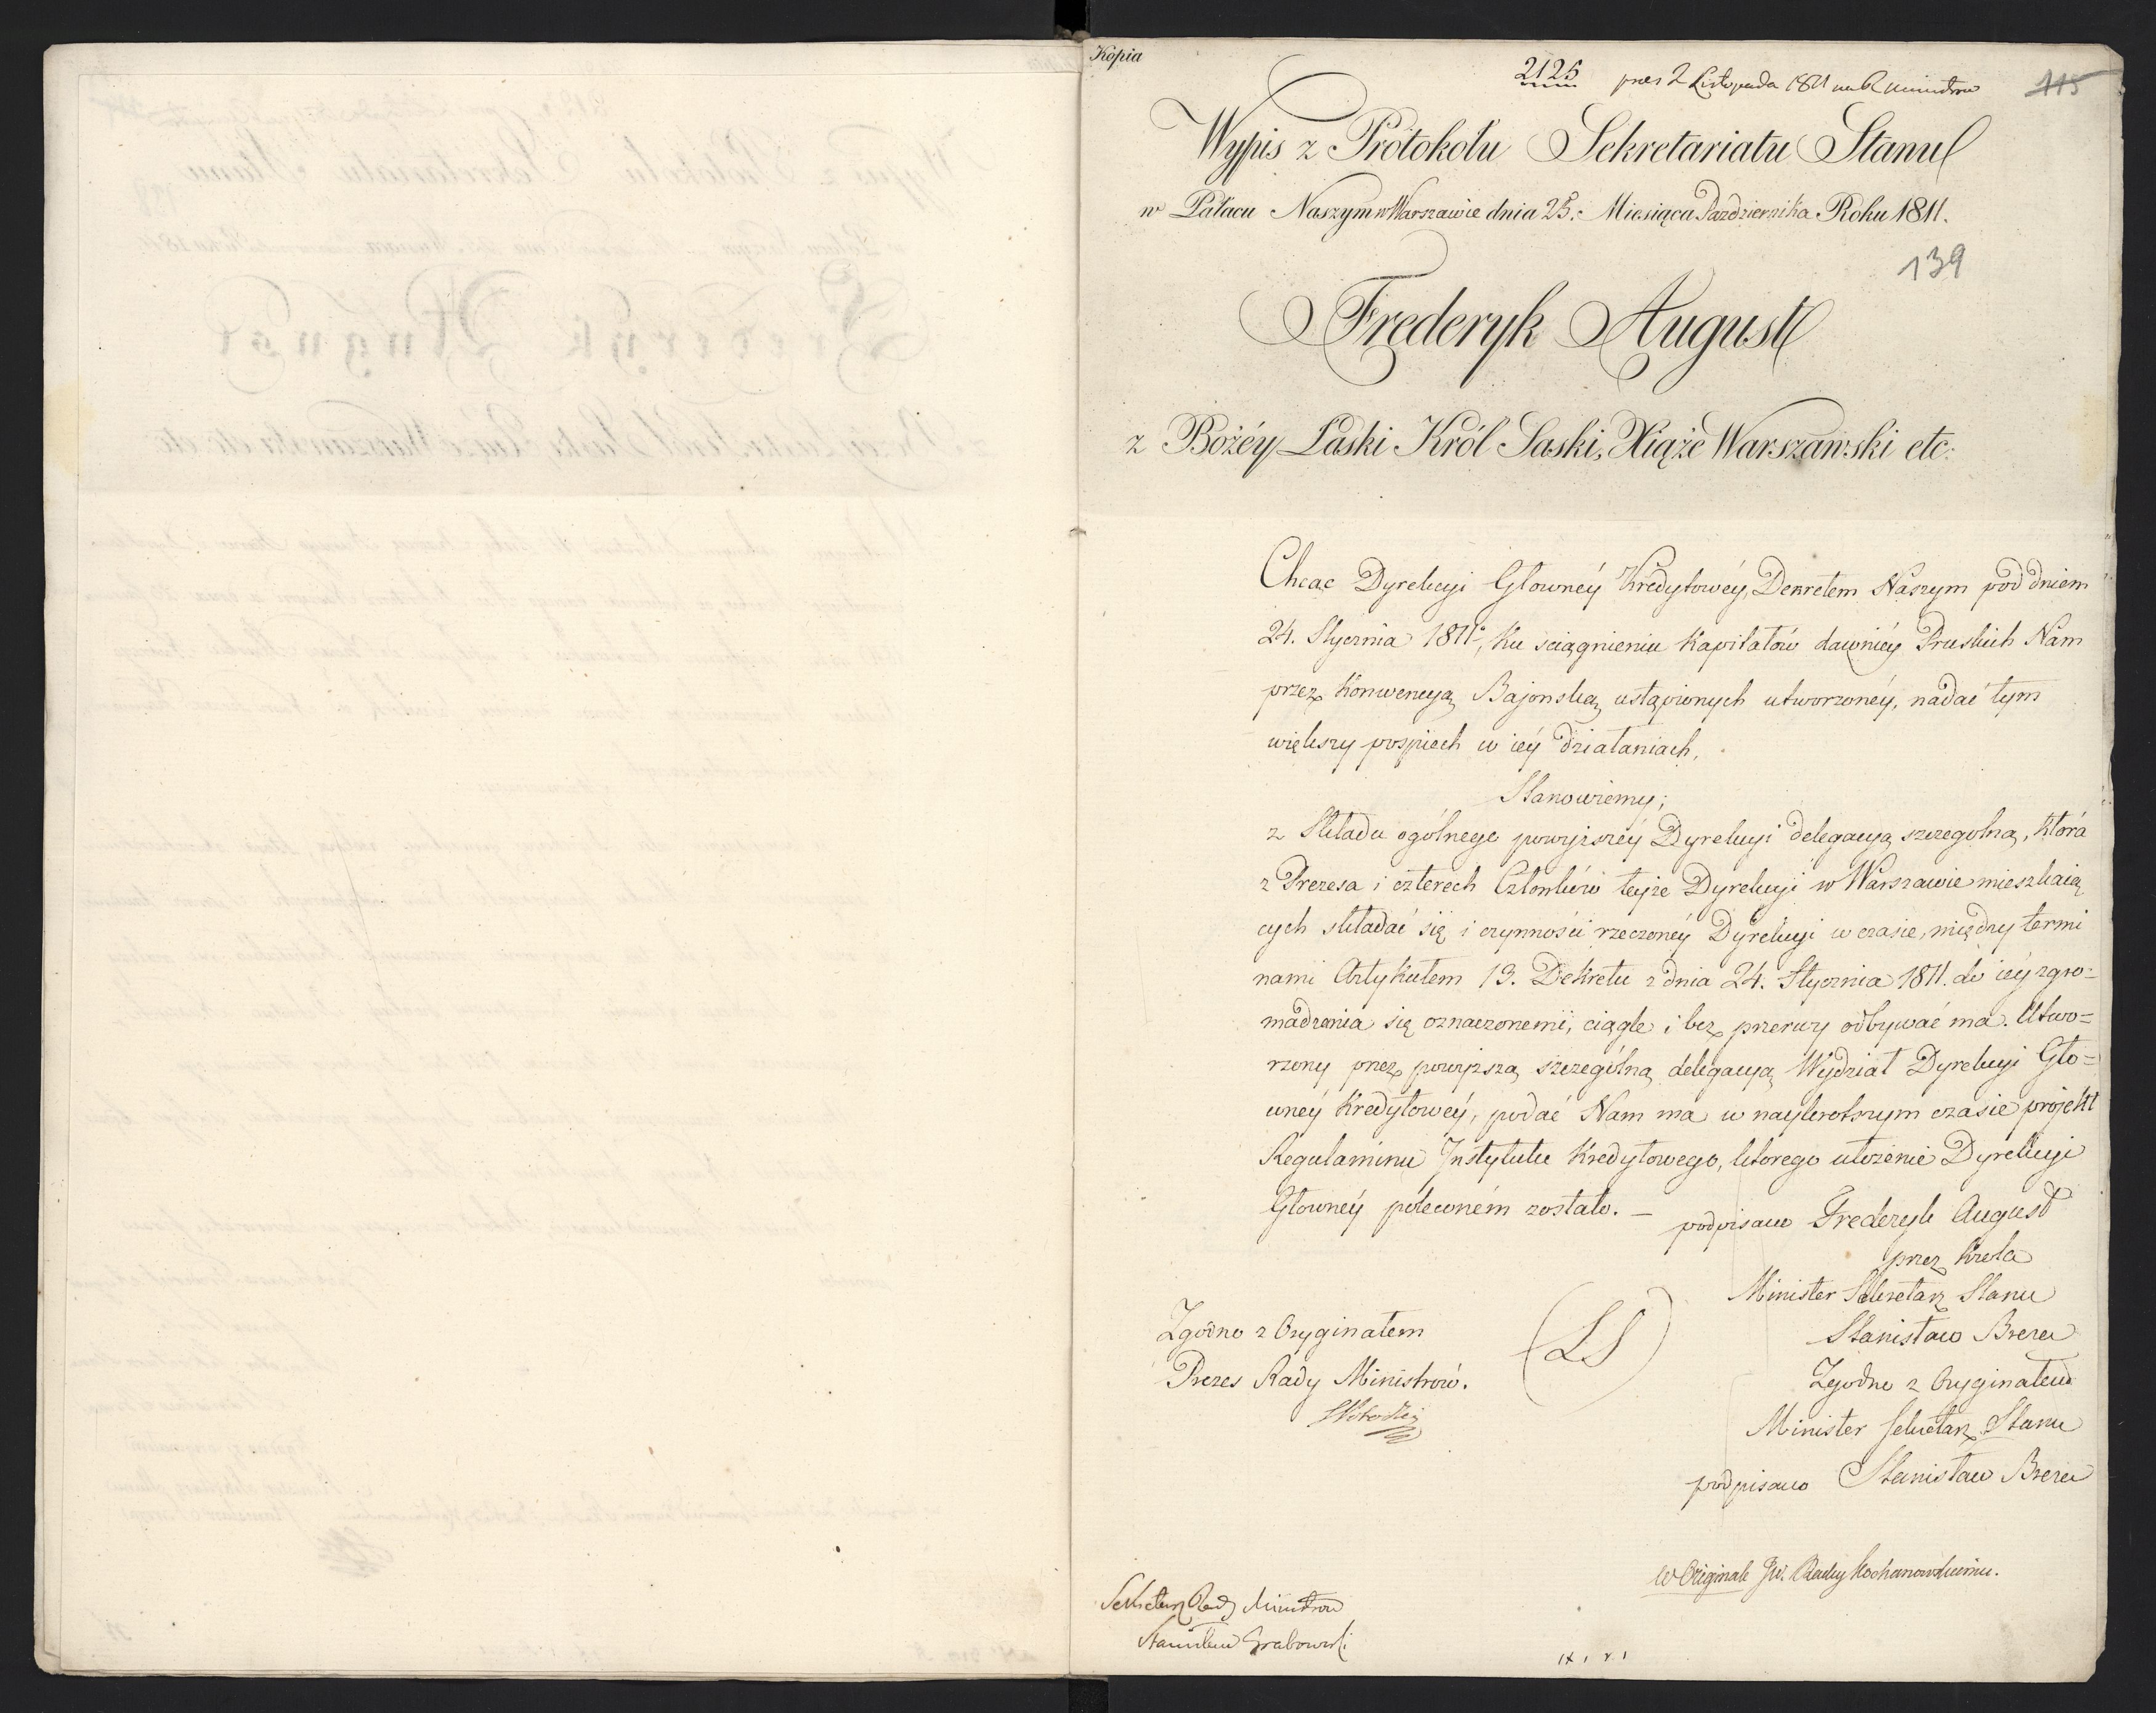 Kopia
2125 prez 2 Listopada 1811 na R Ministrow 115
Wypis z Protokołu Sekretariatu Stanu
w Pałacu Naszym w Warszawie dnia 25. Miesiąca Pazdziernika Roku 1811.
139
Frederyk August
z Bożéy Łaski Król Saski, Xiąże Warszawski etc:
Chcąc Dyrekcyi Głowney Kredytowéy, Dekretem Naszym pod dniem
24. Stycznia 1811, ku sciągnieniu Kapitałów dawniéy Pruskich Nam
przez Konwencyą Bajonską ustąpionych utworzonéy, nadać tym
większy pospiech w iéy działaniach,
Stanowiemy;
z Składu ogólnego powyższéy Dyrekcyi delegacyą szczegolną, która
z Prezesa i czterech Członków teyże Dyrekcyi w Warszawie mieszkaią
cych składać się i czynności rzeczonéy Dyrekcyi w czasie, między termi
nami Artykułem 13. Dekretu z dnia 24. Stycznia 1811. do iéy zgro=
madzenia się oznaczonemi, ciągle i bez przerwy odbywać ma. Utwo=
rzony przez powyższą szczególną delegacyą Wydział Dyrekcyi Gło=
wnéy Kredytowéy, podać Nam ma w naykrotszym czasie projekt
Regulaminu Jnstytutu Kredytowego, ktorego ułożenie Dyrekcyi
Głownéy poleconém zostało. — podpisano Frederyk August
przez Króla
Minister Sekretarz Stanu
Zgodno z Oryginałem (LS) Stanisław Breza
Prezes Rady Ministrów. Zgodno z Oryginałem
Minister Sekretarz Stanu
podpisano Stanisław Breza
w Originale JW. Radcy Kochanowskiemu.
Sekretarz Rady Ministrow
Stanisław Grabowski